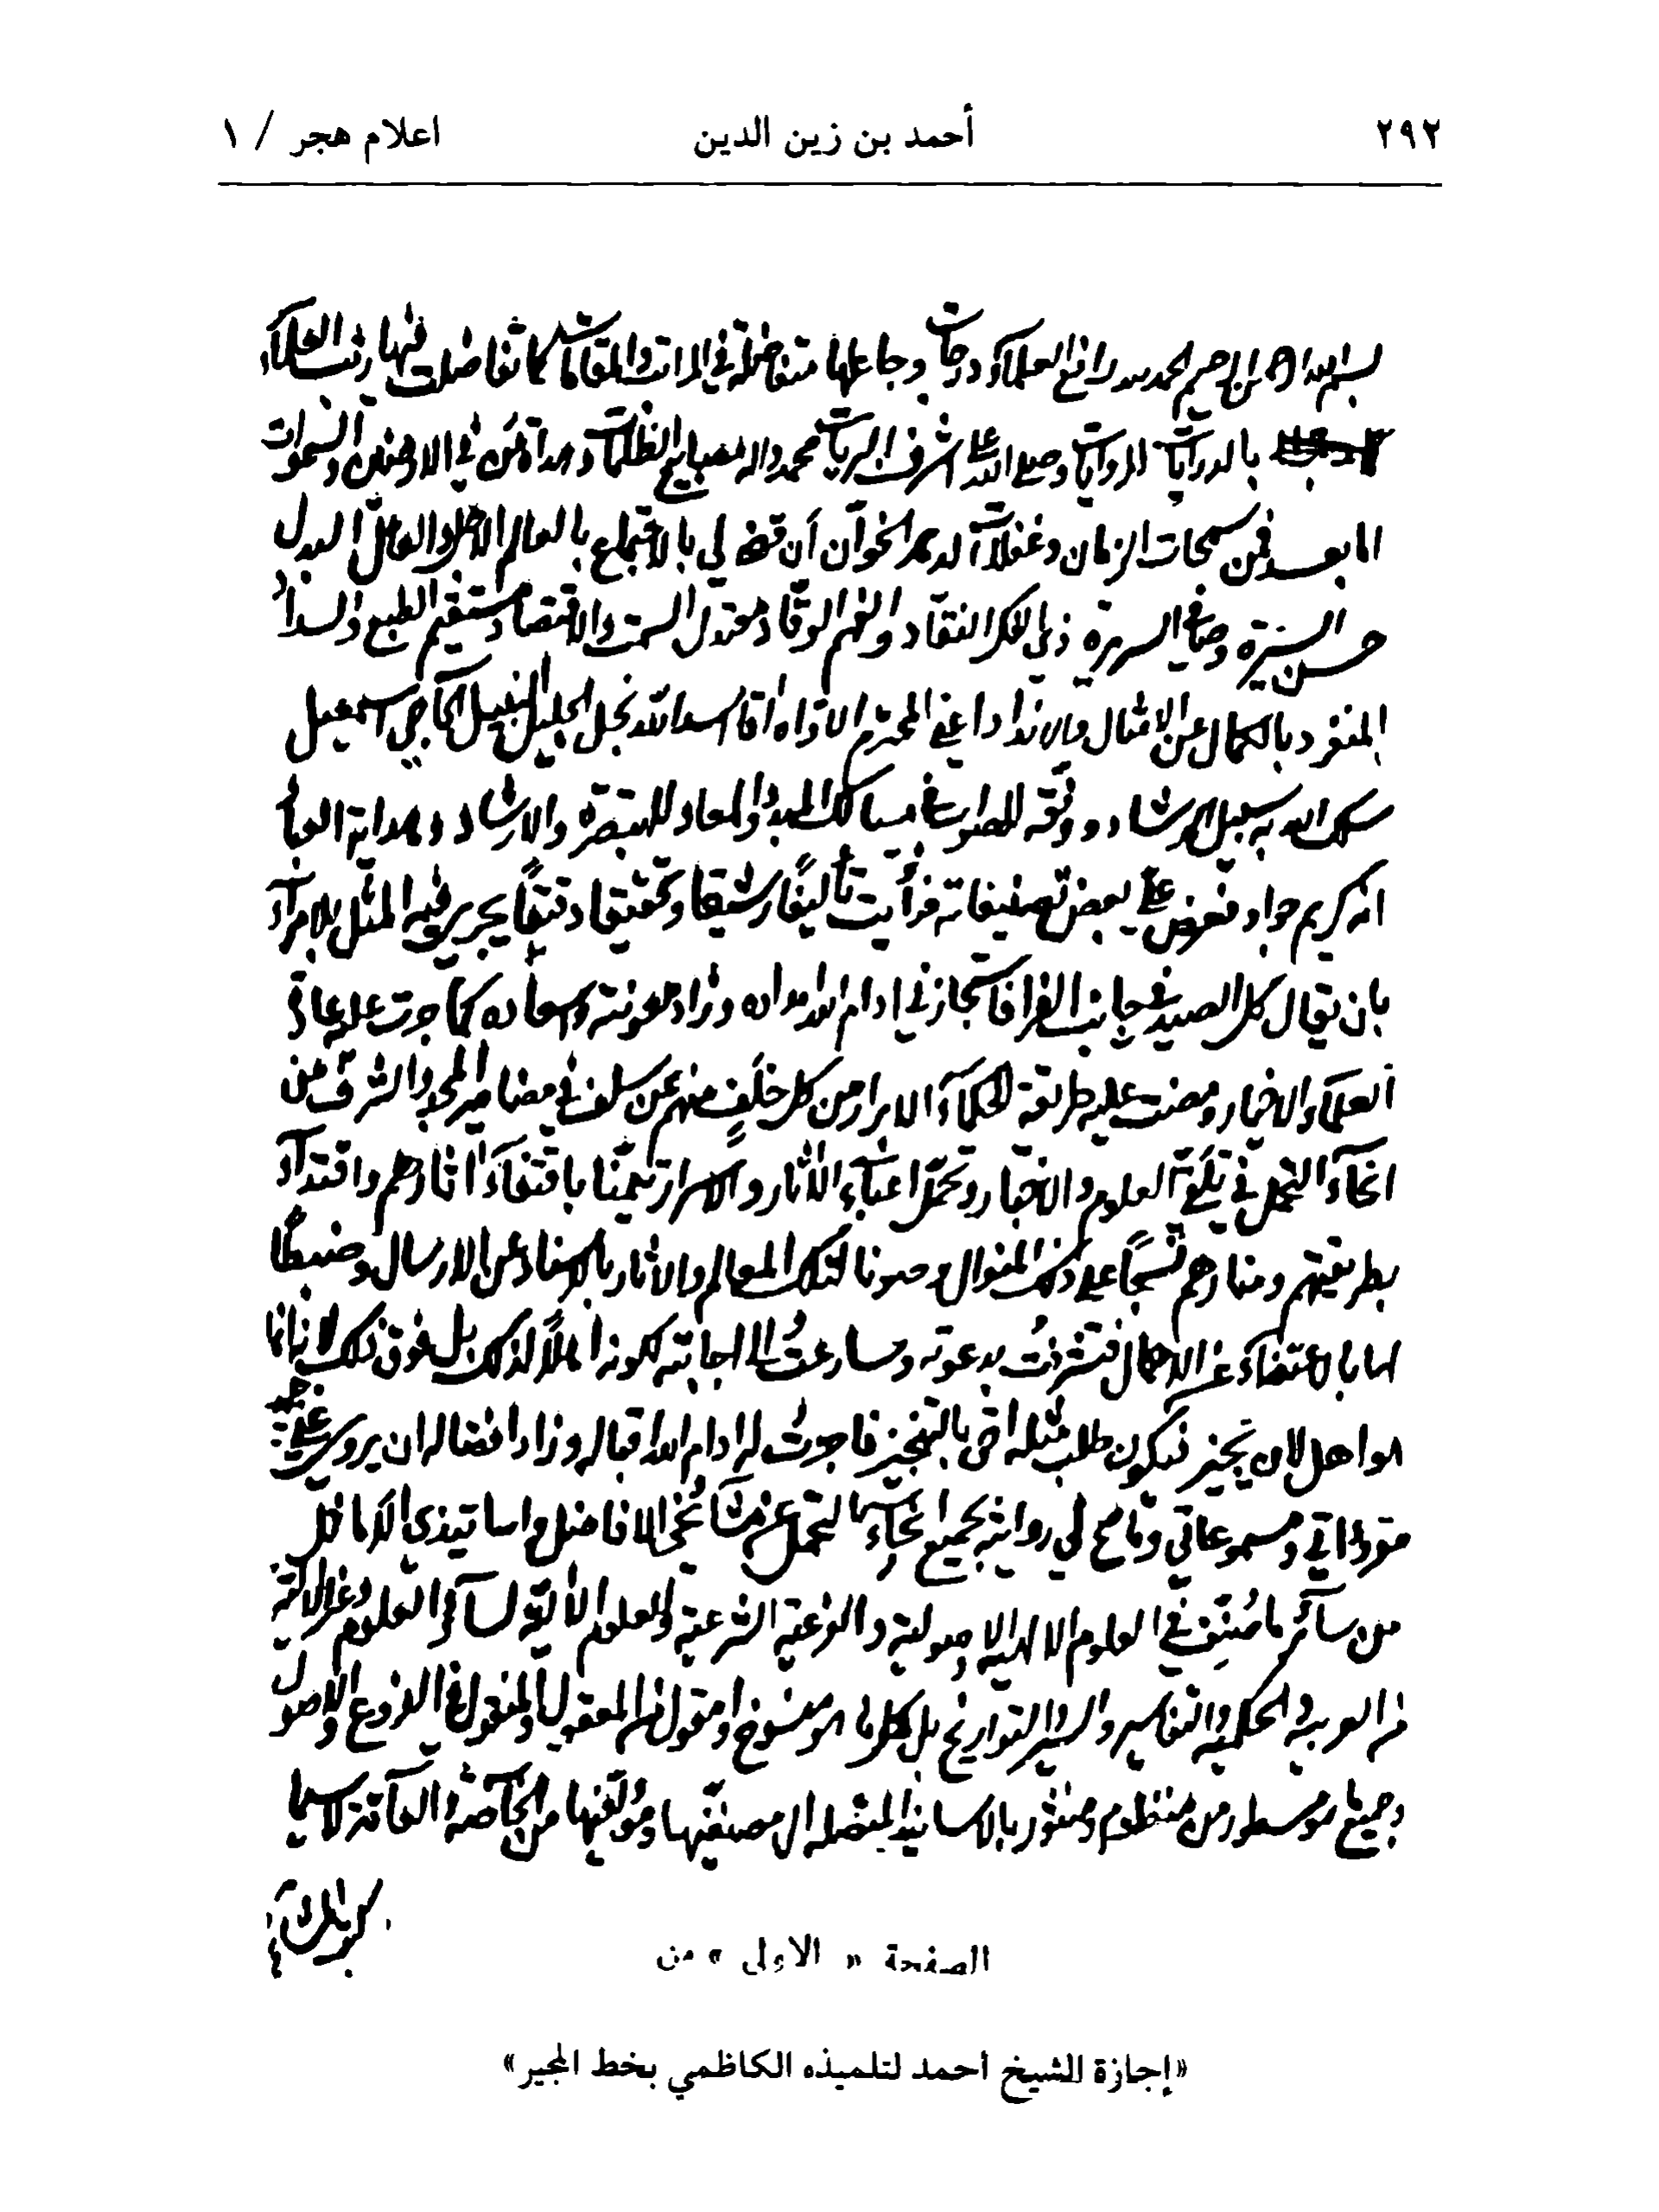 ٢٩٢ أحمد بن زين الدين اعلام هجر / ١
بسم الله الرحمن الرحيم الحمد لله رافع العلماء درجات وجاعلها متفاضلة في المراتب والمقامات كما تفاضلت فيها رتب العلماء
بالدرايات والروايات وصلى الله على اشرف البريات محمد واله مصابيح الظلمات وهداة من في الارضين والسموات
اما بعد فمن سمحات الزمان وغفلات الدهر الخوان أن قضى لي بالاجتماع بالعالم الامل والعامل البدل
حسن السيرة وصافي السريرة ذي الفكر النقاد والفهم الوقاد معتدل السمت والاقتصاد مستقيم الطبع والسداد
المنفرد بالكمال عن الامثال والانداد اعني المحترم الاواه اقا اسد الله نجل الجليل النبيل الحاجي اسمعيل
سلك الله به سبيل الرشاد ووفقه للصواب في مسالك المبدا والمعاد للتبصرة والارشاد وهداية العباد
انه كريم جواد فعرض علي بعض تصنيفاته فرأيت تأليفًا رشيقا وتحقيقا دقيقًا يجري فيه المثل بلا مراء
بان يقال كل الصيد في جانب الفرا فاستجازني ادام الله امداده وزاد معونته واسعاده كما جرت عليه عادة
العلماء الاخيار ومضت عليه طريقة الحكماء الابرار من كل خلَفٍ منهم عن سلف في مضامير المجد والشرف من
انحاء التحمل في تلقي العلوم والاخبار وتحمّل اعباء الاثار والاسرار تيمّنًا باقتفاء اثارهم واقتداء
بطريقتهم ومنارهم نسجًا على ذلك المنوال وصونا لتلك المعالم والاثار بالاسناد عن الارسال وضبطًا
لها بالاعتضاد عن الاهمال فتشرفتُ بدعوته وسارعتُ الى اجابته لكونه اهلًا لذلك بل فوق ذلك لانه انما
هو اهل لان يجيز فيكون طلب مثله احق بالتنجيز فاجزت له ادام الله اقباله وزاد افضاله ان يروي عني جميع
مقرواتي ومسموعاتي وما صح لي روايته بجميع انحاء التحمل عن مشائخي الافاضل واساتيذي الاماثل
من سائر ما صُنّف في العلوم الالهية الاصولية والفرعية الشرعية والعلوم الالية لسائر العلوم وغير الالية
من العربية والحكمية والتفاسير والسير والتواريخ بل كل ما هو منسوخ او مقول من المعقول والمنقول في الفروع والاصول
وجميع ما هو مسطور من منظوم ومنثور بالاسانيد المتصلة الى مصنفيها ومؤلفيها من الخاصة والعامة لاسيما
الصفحة « الاولى » من
«إجازة للشيخ أحمد لتلميذه الكاظمي بخط المجير»